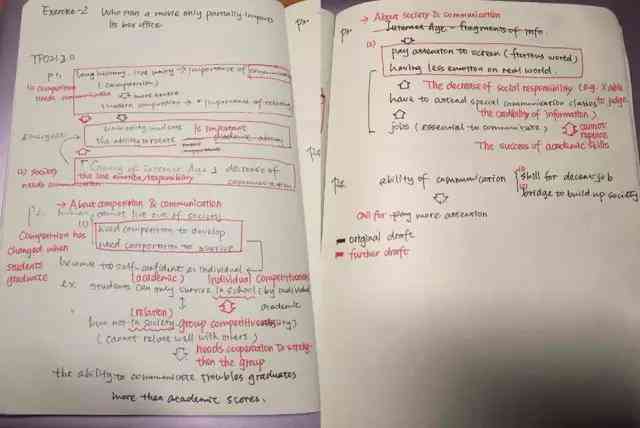 Exercise-2 Who than a movie only partially impacts
its box office.
TPO21 3.0
P1. long history, live unity → importance of communication
(1) competition (competition)
needs communication more severe
modern competition → importance of relation
Emergence university student is important
the ability to relate academic
(2) society Coming of Internet Age, decrease of
needs communication the less emotion/responsibility communication
P2. → About competition & communication
human cannot live out of society
(1)
Competition has need competition to develop
changed when need cooperation to survive
students
graduate become too self-confident as individual
(academic) individual competition
ex. students can only survive in school (by individual
academic
(relation)
but not in society group competitive
(cannot relate well with others)
needs cooperation to
then the group
the ability to communicate troubles graduates
more than academic scores.
→ About society & communication
Internet Age - fragments of info
(2)
pay attention to screen (fictious world)
having less emotion on real world.
The decrease of social responsibility (e.g. X able
have to attend special communication classes to judge
the credibility of information)
jobs (essential to communicate) cannot
replace
The success of academic skills
ability of communication (1) skill for decent job
(2) bridge to build up society
call for pay more attention
original draft
further draft